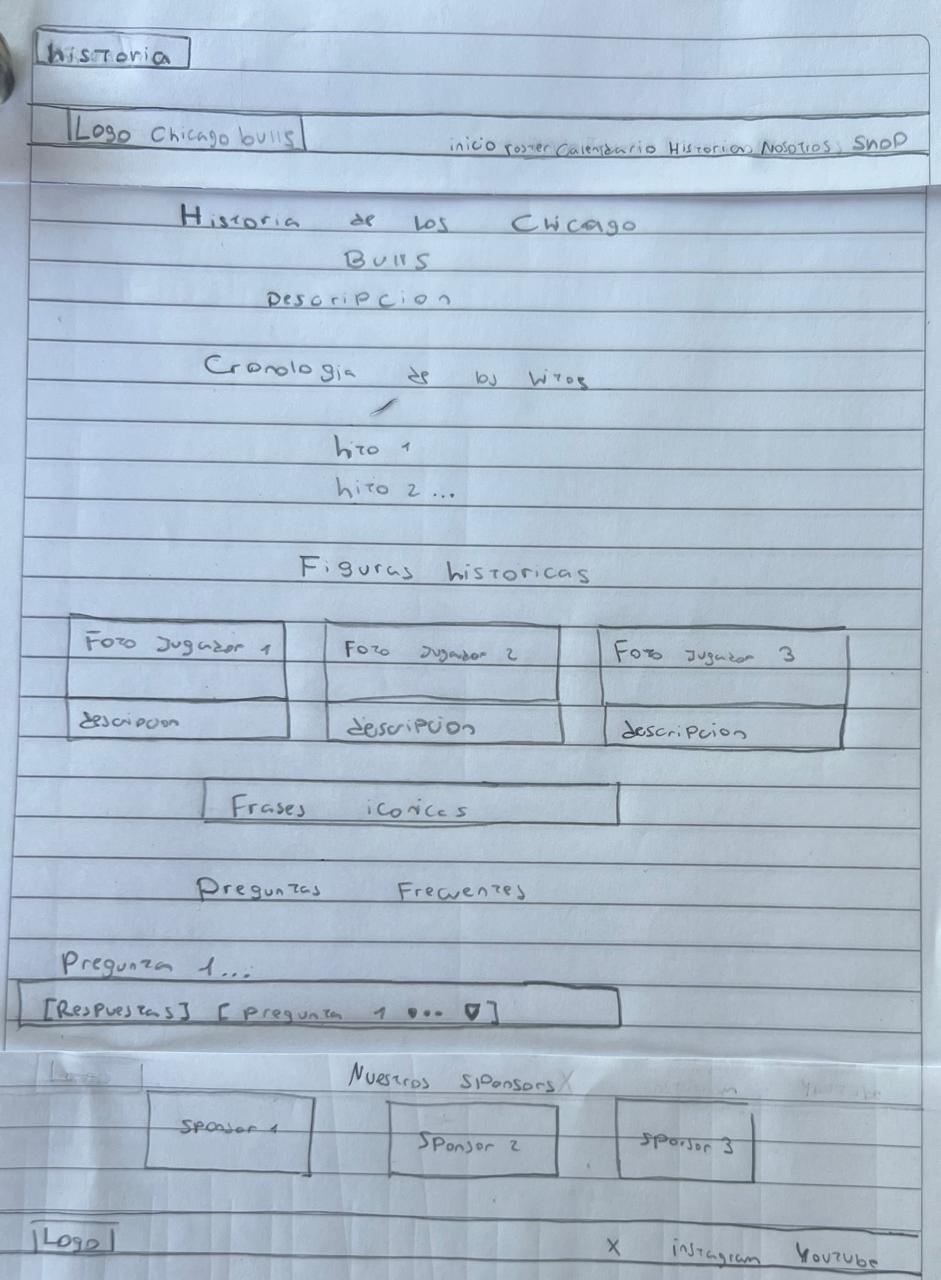 historia
Logo Chicago bulls
inicio roster Calendario Historia Nosotros Shop
Historia de los Chicago
Bulls
Descripcion
Cronologia de los hitos
hito 1
hito 2 ...
Figuras historicas
Foto Jugador 1
Foto Jugador 2
Foto Jugador 3
descripcion
descripcion
descripcion
Frases iconicas
Preguntas Frecuentes
Pregunta 1...
[Respuestas] [pregunta 1 ... ▽]
Nuestros sponsors X
sponsor 1
Sponsor 2
sponsor 3
Logo
X instagram Youtube